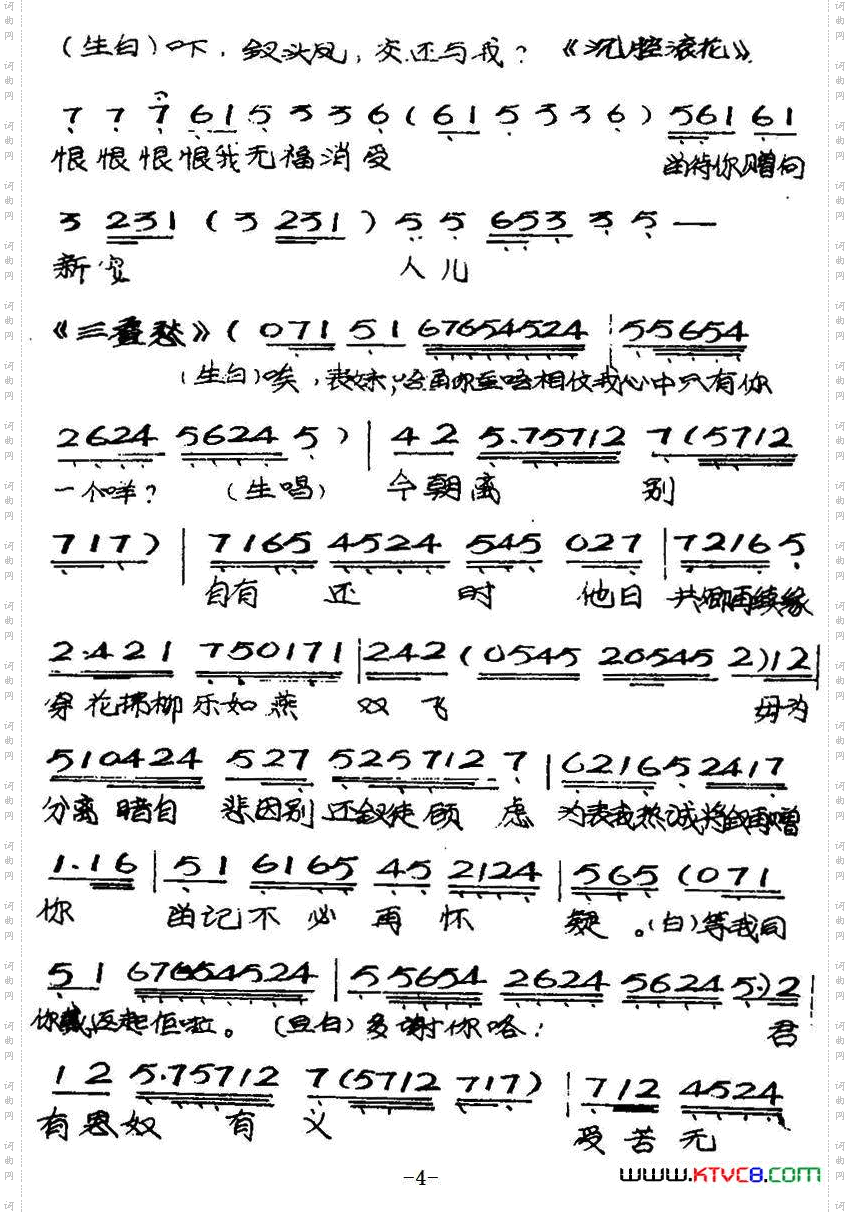 （生白）吓，钗头凤，交还与我？《沉腔滚花》
7 7 7 6 1 5 3 3 6 ( 6 1 5 3 3 6 ) 5 6 1 6 1
恨恨恨恨我无福消受 留待你赠向
3 2 3 1 ( 3 2 3 1 ) 5 5 6 5 3 3 5 —
新 人儿
《三叠愁》( 0 7 1 5 1 6 7 6 5 4 5 2 4 | 5 5 6 5 4
（生白）唉，表妹， 相信我心中只有你
2 6 2 4 5 6 2 4 5 ) | 4 2 5 . 7 5 7 1 2 7 ( 5 7 1 2
一个咩？（生唱）今朝离别
7 1 7 ) | 7 1 6 5 4 5 2 4 5 4 5 0 2 7 | 7 2 1 6 5
自有还时 他日 共卿再续缘
2 . 4 2 1 7 5 0 1 7 1 | 2 4 2 ( 0 5 4 5 2 0 5 4 5 2 ) 1 2 |
穿花拂柳乐如燕双飞 毋为
5 1 0 4 2 4 5 2 7 5 2 5 7 1 2 7 | 0 2 1 6 5 2 4 1 7
分离暗自悲因别还钗徒顾虑 为表我热诚将钗再赠
1 . 1 6 | 5 1 6 1 6 5 4 5 2 1 2 4 | 5 6 5 ( 0 7 1
你 留记不必再怀疑。（白）等我同
5 1 6 7 6 5 4 5 2 4 | 5 5 6 5 4 2 6 2 4 5 6 2 4 5 · ) 2 |
你戴返起佢啦。（旦白）多谢你咯！ 君
1 2 5 . 7 5 7 1 2 7 ( 5 7 1 2 7 1 7 ) | 7 1 2 4 5 2 4
有恩奴有义 受苦无
-4-
www.KTVC8.COM
词曲网